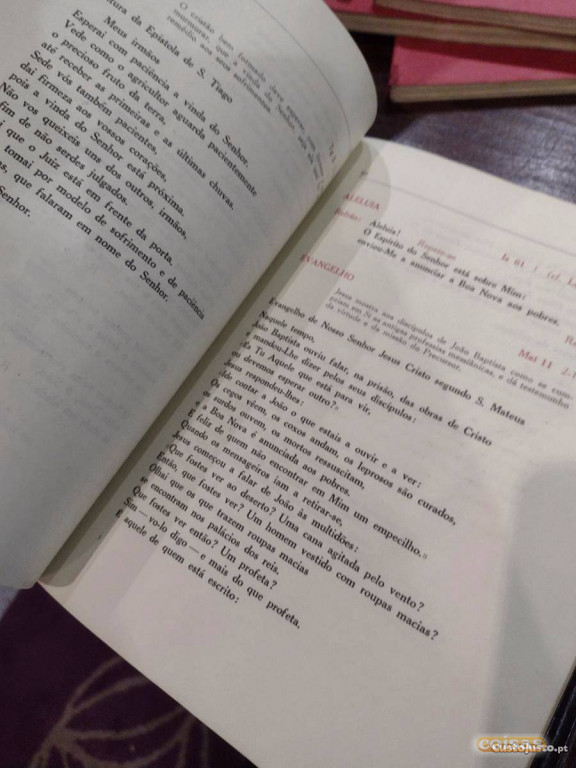 O cristão bem formado deve
murmurar, que a vinda do Senhor,
remédio aos seus sofrimentos.
tura da Epístola de S. Tiago
Meus irmãos
Esperai com paciência a vinda do Senhor.
Vede como o agricultor aguarda pacientemente
o precioso fruto da terra,
até receber as primeiras e as últimas chuvas.
Sede vós também pacientes
dai firmeza aos vossos corações,
pois a vinda do Senhor está próxima.
Não vos queixeis uns dos outros, irmãos,
fim de não serdes julgados.
que o Juiz está em frente da porta.
tomai por modelo de sofrimento e de paciência
s, que falaram em nome do Senhor.
Senhor.
ALELUIA
Refrão: Aleluia! Repete-se
Is 61, 1
O Espírito do Senhor está sobre Mim:
enviou-Me a anunciar a Boa Nova aos pobres.
EVANGELHO
Mat 11
Jesus mostra aos discípulos de João Baptista como se cum-
priam em N'Ele as antigas profecias messiânicas, e dá testemunho
da virtude e da missão do Precursor.
Evangelho de Nosso Senhor Jesus Cristo segundo S. Mateus
Naquele tempo,
João Baptista ouviu falar, na prisão, das obras de Cristo
e mandou-Lhe dizer pelos seus discípulos:
Tu Aquele que está para vir,
ou devemos esperar outro?»
Jesus respondeu-lhes:
contar a João o que estais a ouvir e a ver:
Os cegos vêem, os coxos andam, os leprosos são curados,
os surdos ouvem, os mortos ressuscitam,
a Boa Nova é anunciada aos pobres.
E feliz de quem não encontrar em Mim um empecilho.»
Quando os mensageiros iam a retirar-se,
Jesus começou a falar de João às multidões:
Que fostes ver ao deserto? Uma cana agitada pelo vento?
Então, que fostes ver? Um homem vestido com roupas macias?
Olhai que os que trazem roupas macias
se encontram nos palácios dos reis.
Que fostes ver então? Um profeta?
Sim — vo-lo digo — e mais do que profeta.
É aquele de quem está escrito:
coisas
CustoJusto.pt